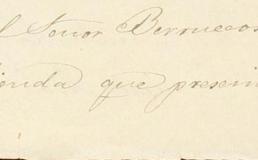 l Señor Berruecos
ienda que presen